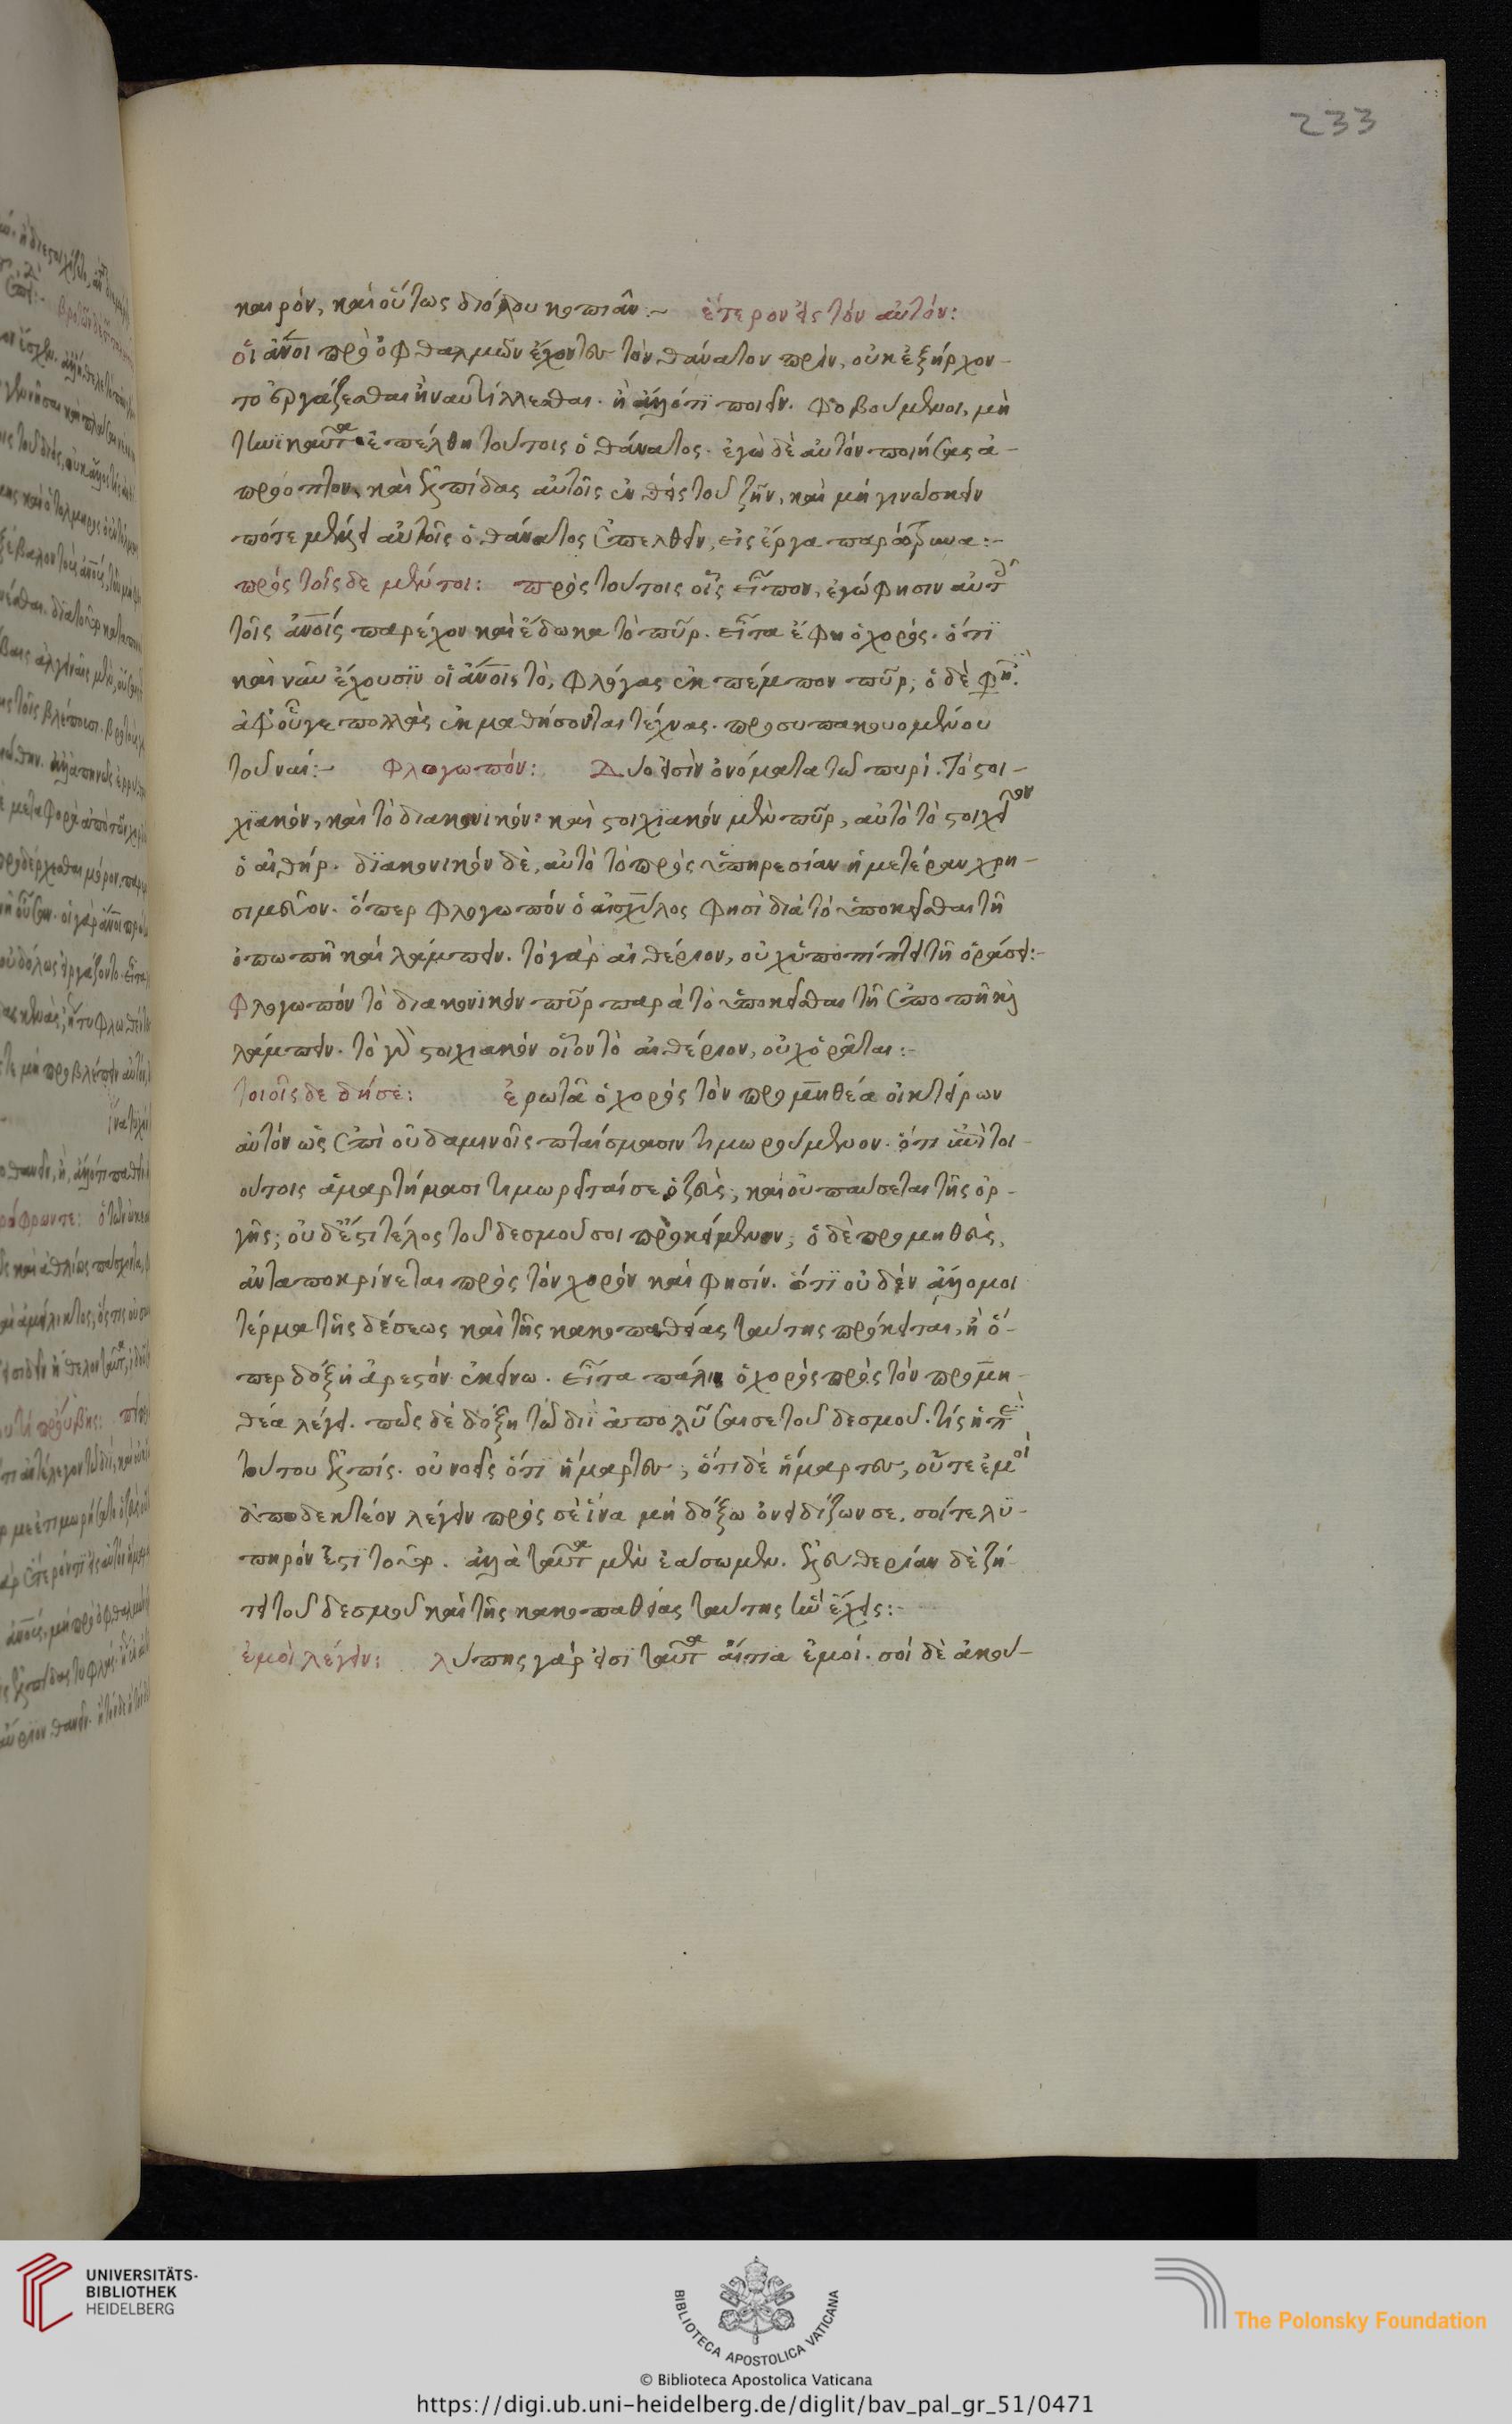 233
καιρόν, καὶ οὕτως διόλου κοπιᾶν:~ ἕτερον εἰς τὸν αὐτόν:
οἱ ἄνοι πρὸ ὀφθαλμῶν ἔχοντες τὸν θάνατον πρὶν, οὐκ ἐξήρχον-
το ἐργάζεσθαι ἢ ναυτίλλεσθαι. ἢ ἄλλό τι ποιεῖν. φοβούμενοι, μὴ
τηνικαῦτα ἐπέλθη τούτοις ὁ θάνατος. ἐγὼ δὲ αὐτὸν ποιήσας ἀ-
πρόοπτον, καὶ ἐλπίδας αὐτοῖς ἐνθεὶς τοῦ ζῆν, καὶ μὴ γινώσκειν
πότε μέλλει αὐτοῖς ὁ θάνατος ἐπελθεῖν, εἰς ἔργα παρώρμησα:-
πρὸς τοῖσδε μέντοι: πρὸς τούτοις οἷς εἶπον, ἐγώ φησιν αὐτ
τοῖς ἀνοίς παρέχον καὶ ἔδωκα τὸ πῦρ. εἶτα ἔφη ὁ χορός. ὅτι
καὶ νῦν ἔχουσιν οἱ ἄνοις τὸ, φλόγας ἐκπέμπον πῦρ; ὁ δὲ φη.
ἀφ' οὗγε πολλὰς ἐκμαθήσονται τέχνας. προσυπακουομένου
τοῦ ναί:- φλογωπόν: Δύο εἰσὶν ὀνόματα τῶ πυρί. τὸ στοι-
χιακόν, καὶ τὸ διακονικόν: καὶ στοιχιακόν μὲν πῦρ, αὐτὸ τὸ στοιχεῖον
ὁ αἰθήρ. διακονικὸν δὲ, αὐτὸ τὸ πρὸς ὑπηρεσίαν ἡμετέραν χρη-
σιμεῦον. ὅπερ φλογωπὸν ὁ αἰσχύλος φησὶ διὰ τὸ ὑποκεῖσθαι τῆ
ὀπωπῆ καὶ λάμπειν. τὸ γὰρ αἰθέριον, οὐχ ὑποπίπτει τῆ ὁράσει:-
φλογωπὸν τὸ διακονικὸν πῦρ παρὰ τὸ ὑποκεῖσθαι τῆ ὀπωπῆ καὶ
λάμπειν. τὸ γὰρ στοιχιακόν οἷον τὸ αἰθέριον, οὐχ ὁρᾶται:-
τοιοῖσδε δή σε: ἐρωτᾶ ὁ χορὸς τὸν προμηθέα οἰκτείρων
αὐτὸν ὡς ἐπὶ οὐδαμινοῖς πταίσμασιν τιμωρούμενον. ὅτι ἐπὶ τοι-
ούτοις ἁμαρτήμασι τιμωρεῖταί σε ὁ ζεὺς; καὶ οὐ παύσεται τῆς ὀρ-
γῆς; οὐδέ ἐστι τέλος τοῦ δεσμοῦ σοι προκείμενον; ὁ δὲ προμηθεὺς,
ἀνταποκρίνεται πρὸς τὸν χορὸν καὶ φησίν. ὅτι οὐδὲν ἄλλο μοι
τέρμα τῆς δέσεως καὶ τῆς κακοπαθείας ταύτης πρόκειται, ἢ ὅ-
περ δόξη ἀρεστὸν ἐκείνω. εἶτα πάλιν ὁ χορὸς πρὸς τὸν προμη-
θέα λέγει. πῶς δὲ δόξη τῶ διῒ ἀπολῦσαι σε τοῦ δεσμοῦ. τίς ἡ ἐπὶ
τούτου ἐλπίς. οὐ νοεῖς ὅτι ἥμαρτες; ὅτι δὲ ἥμαρτες, οὔτε ἐμοὶ
ἀποδεκτέον λέγειν πρὸς σὲ ἵνα μὴ δόξω ὀνειδίζων σε, σοί τε λυ-
πηρόν ἐστι τοῦτο. ἀλλὰ ταῦτα μὲν ἐάσωμεν. ἐλευθερίαν δὲ ζή-
τει τοῦ δεσμοῦ καὶ τῆς κακοπαθείας ταύτης ἣν ἔχεις:-
ἐμοὶ λέγειν: λύπης γάρ εἰσι ταῦτα αἴτια ἐμοί. σοὶ δὲ ἀκού-
UNIVERSITÄTS-
BIBLIOTHEK
HEIDELBERG
BIBLIOTECA APOSTOLICA VATICANA
The Polonsky Foundation
© Biblioteca Apostolica Vaticana
https://digi.ub.uni-heidelberg.de/diglit/bav_pal_gr_51/0471